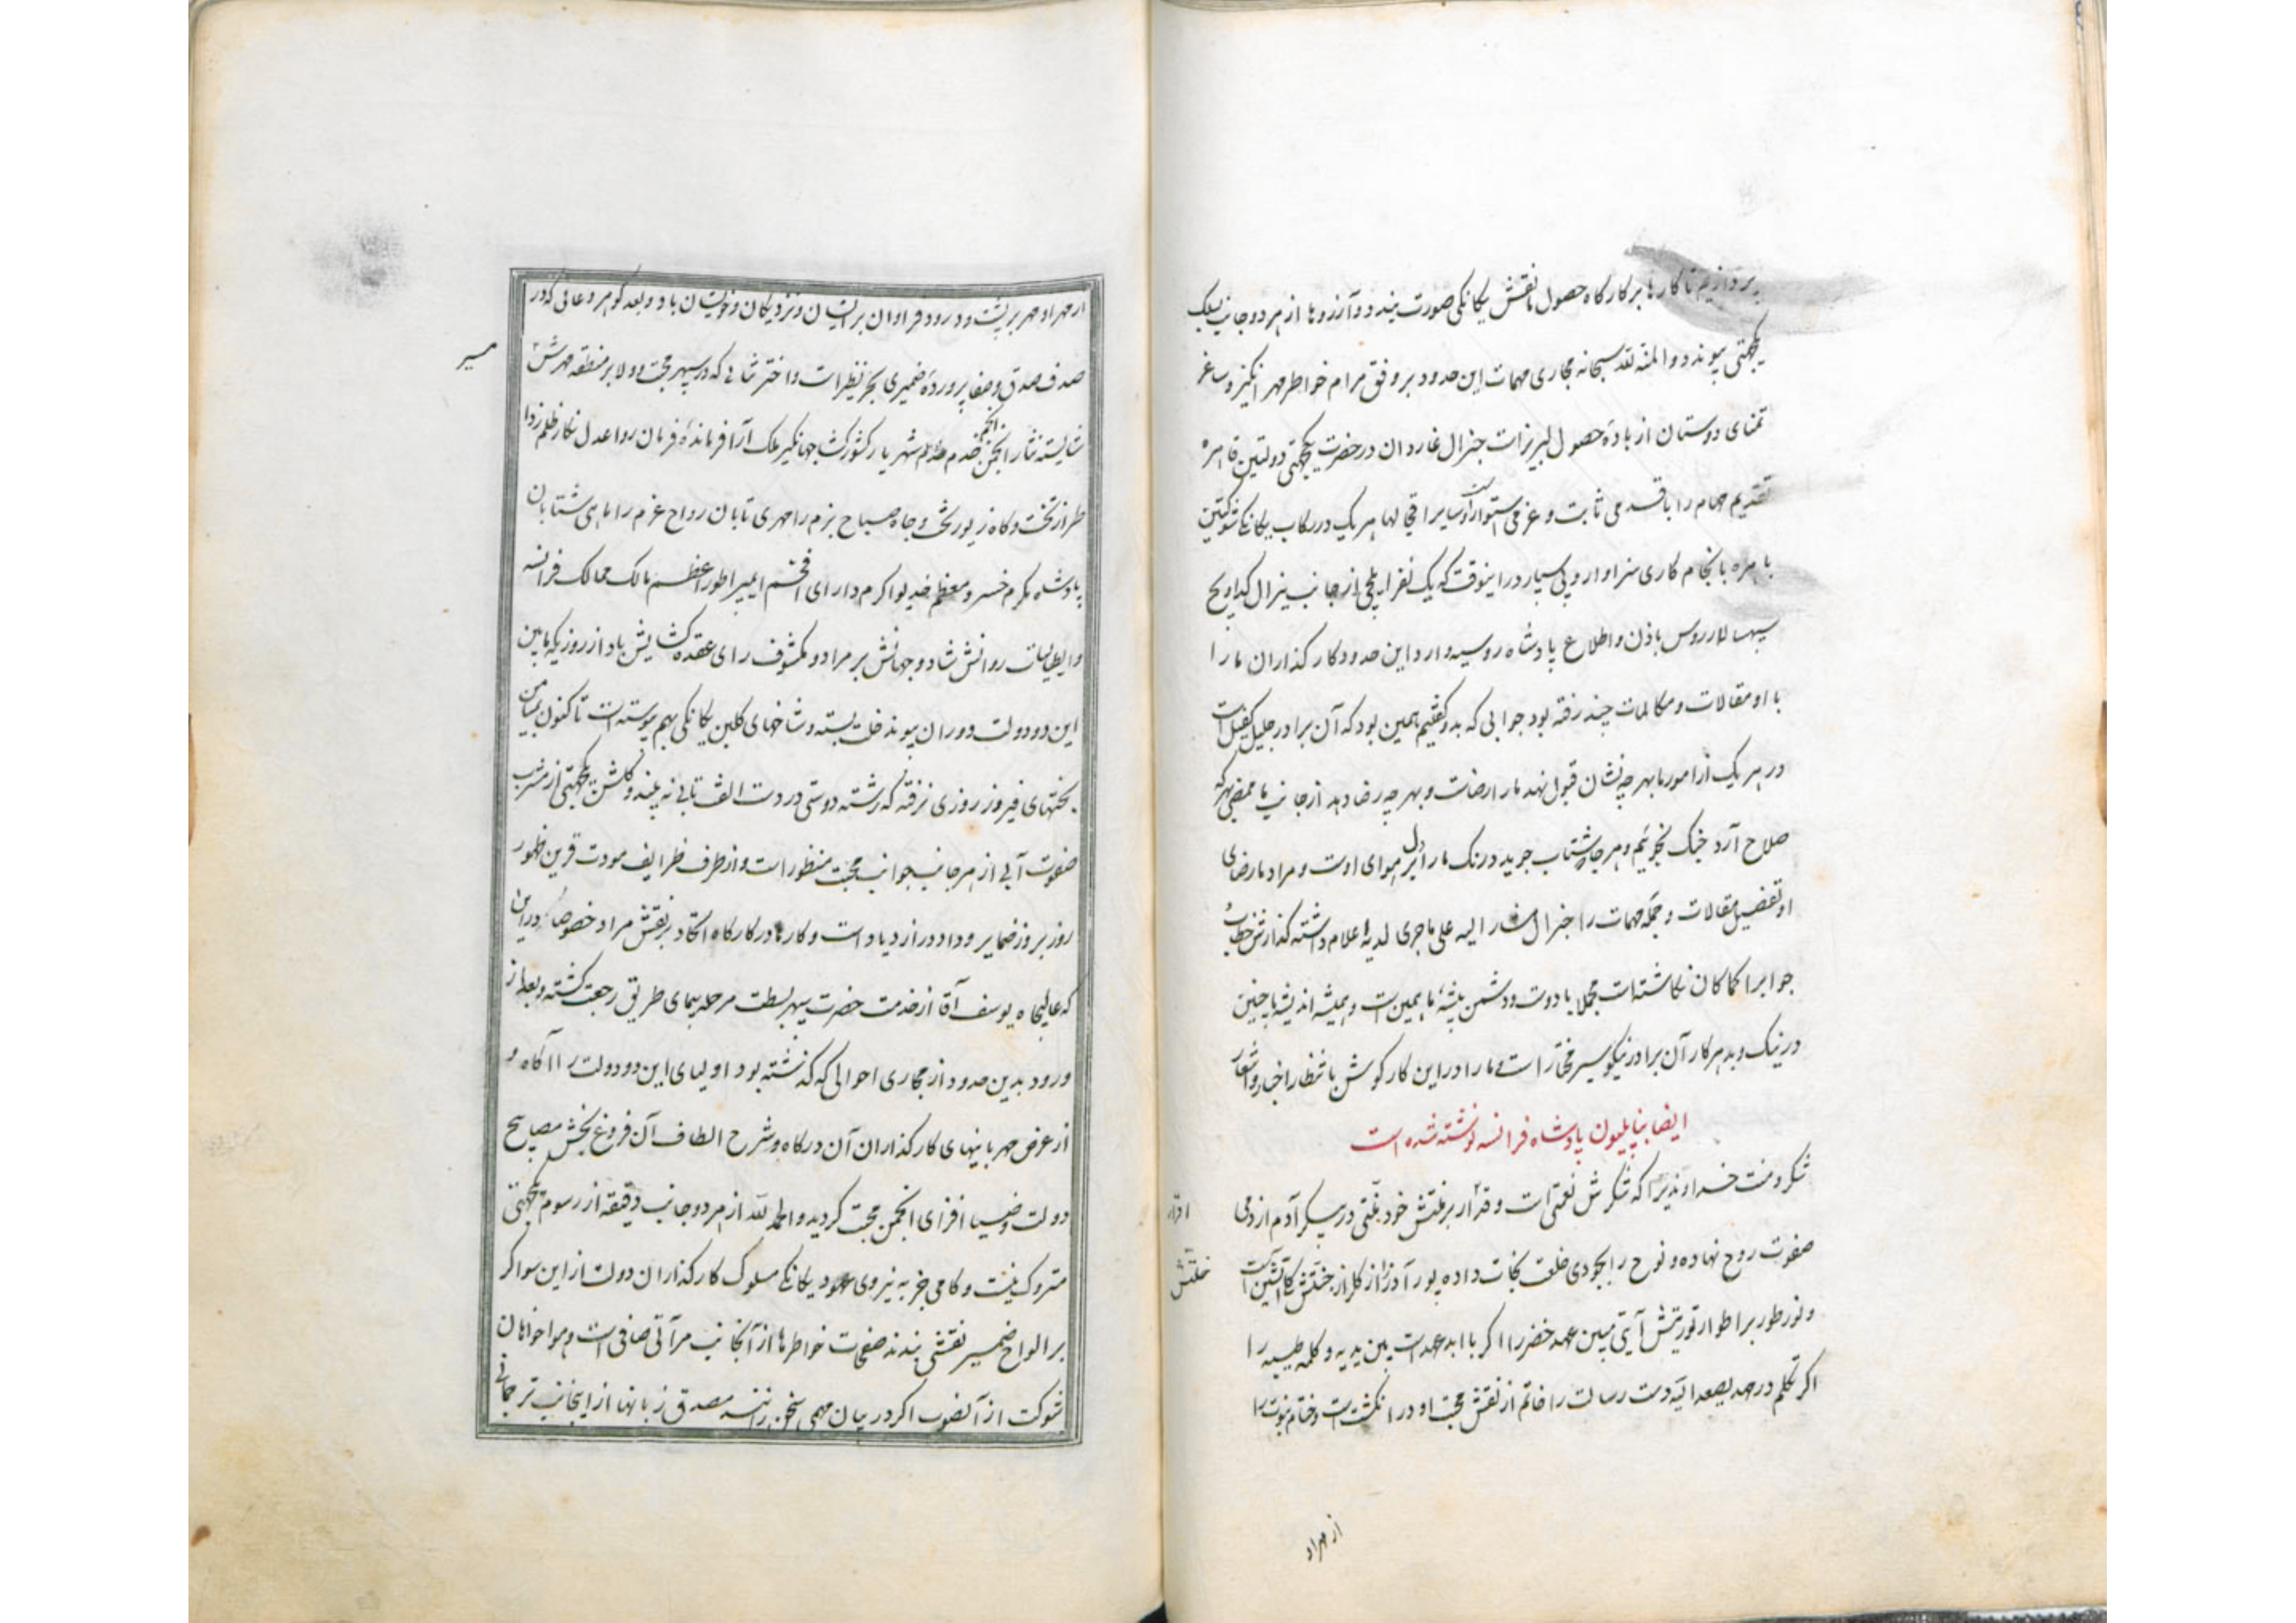 بپردازیم تا کارها بر کارکاه حصول با نقش یکانکی صورت بندد و آرزوها از هر دو جانب بسلک
یکجهتی پیوندد و المنة لله سبحانه مجاری مهمات این حدود بر وفق مرام خواطر مهر انکیز و ساغر
تمنای دوستان از بادهٔ حصول لبریزات جنرال غاردان در حضرت یکجهتی دولتین قاهره
تقدیم مهام را با قدمی ثابت و عزمی استوار و سایر اقحالها هر یک در رکاب یکانکی شوکتین
باهره بانجام کاری سزاوار و پی سپار در اینوقت که یک نفر ایلچی از جانب ینرال کداویچ
سپهسالار روس باذن و اطلاع پادشاه روسیه وارد این حدود کارکذاران ما را
با او مقالات و مکالمات چند رفته بود جوابی که بدو کفتیم همین بود که آن برادر جلیل کفیل است
در هر یک از امور ما بهر چه نشان قبول نهد ما را رضاست و بهر چه رضا دهد از جانب ما ممضی بهر که
صلاح آرد جنک نجوئیم و هر جا شتاب جوید درنک ما را دل بر هوای اوست و مراد ما رضای
او تفصیل مقالات و جمله مهمات را جنرال مشار الیه علی ماجری لدیه اعلام داشته کذارش خطاب و
جوابرا کماکان نکاشته است مجملا با دوست و دشمن پیشهٔ ما همین است و همیشه اندیشه ما چنین
در نیک و بد هر کار آن برادر نیکو سیر مختار است و ما را در این کار کوش بانتظار اخبار و اشعار
ایضا بناپلیون پادشاه فرانسه نوشته شده است
شکر و منت خداوندیرا که شکرش نعمتی است و قدار بر خلتش خود خلتی در پیکر آدم از دمی
اقرار
صفوت روح نهاده و نوح را بجودی خلعت نجات داده پور آذر را از کلزار خلتش کآتشین است
خلتش
و نور طور بر اطوار تورتیش آیتی مبین عهد خضر را اکر با ابد عهد است بین یدیه و کلمه طیبه را
اکر تکلم در مهد یصعد الیه دست رسالت را خاتم از نقش محبت او در انکشت است و ختام نبوت را
از مهر او
از مهر او مهر بر پشت و درود فراوان بر ایشان و نزدیکان و خویشان باد و بعد کوهر دعائی که در
صدف صدق و صفا پروردهٔ ضمیری بحر نظیر است و اختر ثنائی که در سپهر محبت و ولا بر منطقه مهرش
مسیر
شایسته نثار انجمن انجم خدم شهریار کشورکش جهانکیر ملک آرا فرماندهٔ فرمان روا عدل نکار ظلم زدا
طراز تخت و کاه زیور بخت و جاه صباح بزم را مهری تابان رواح عزم را ماهی شتابان
پادشاه مکرم خسرو معظم خدیو اکرم دارای افخم ایمپراطور اعظم مالک ممالک فرانسه
و ایطالیاست روانش شاد و جهانش بر مراد و مکشوف رای عقده کشایش باد از روزیکه مابین
این دو دولت دوران پیوند خلت بسته و شاخهای کلبن یکانکی بهم پیوسته است تاکنون بمیامن
بختهای فیروز روزی نرفته که رشته دوستی در دست الفت تابی نه بیند و کلشن یکجهتی از مشرب
صفوت آبی از هر جانب جوانب محبت منظور است و از طرف ظرایف مودت قرین ظهور
روز بروز ضمایر وداد در ازدیاد است و کارها در کارکاه اتحاد بر نقش مراد خصوصا در این
که عالیجاه یوسف آقا از خدمت حضرت سپهر بسطت مرحله پیمای طریق رجعت کشته و بعد از
ورود بدین حدود از مجاری احوالی که کذشته بود اولیای این دو دولت را آکاه و
از عرض مهربانیهای کارکذاران آن درکاه و شرح الطاف آن فروغ بخش مصابیح
دولت ضیا افزای انجمن محبت کردید و الحمد لله از هر دو جانب دقیقه از رسوم یکجهتی
متروک نیست و کامی جز به نیروی عهود یکانکی مسلوک کارکذاران دولت از این سوا کر
بر الواح ضمیر نقشی بندند صفحات خواطرها از آنجانب مرآتی صافی است و هواخواهان
شوکت از آنصوب اکر در بیان مهمی سخن رانند مصدق زبانها از اینجانب ترجمانی